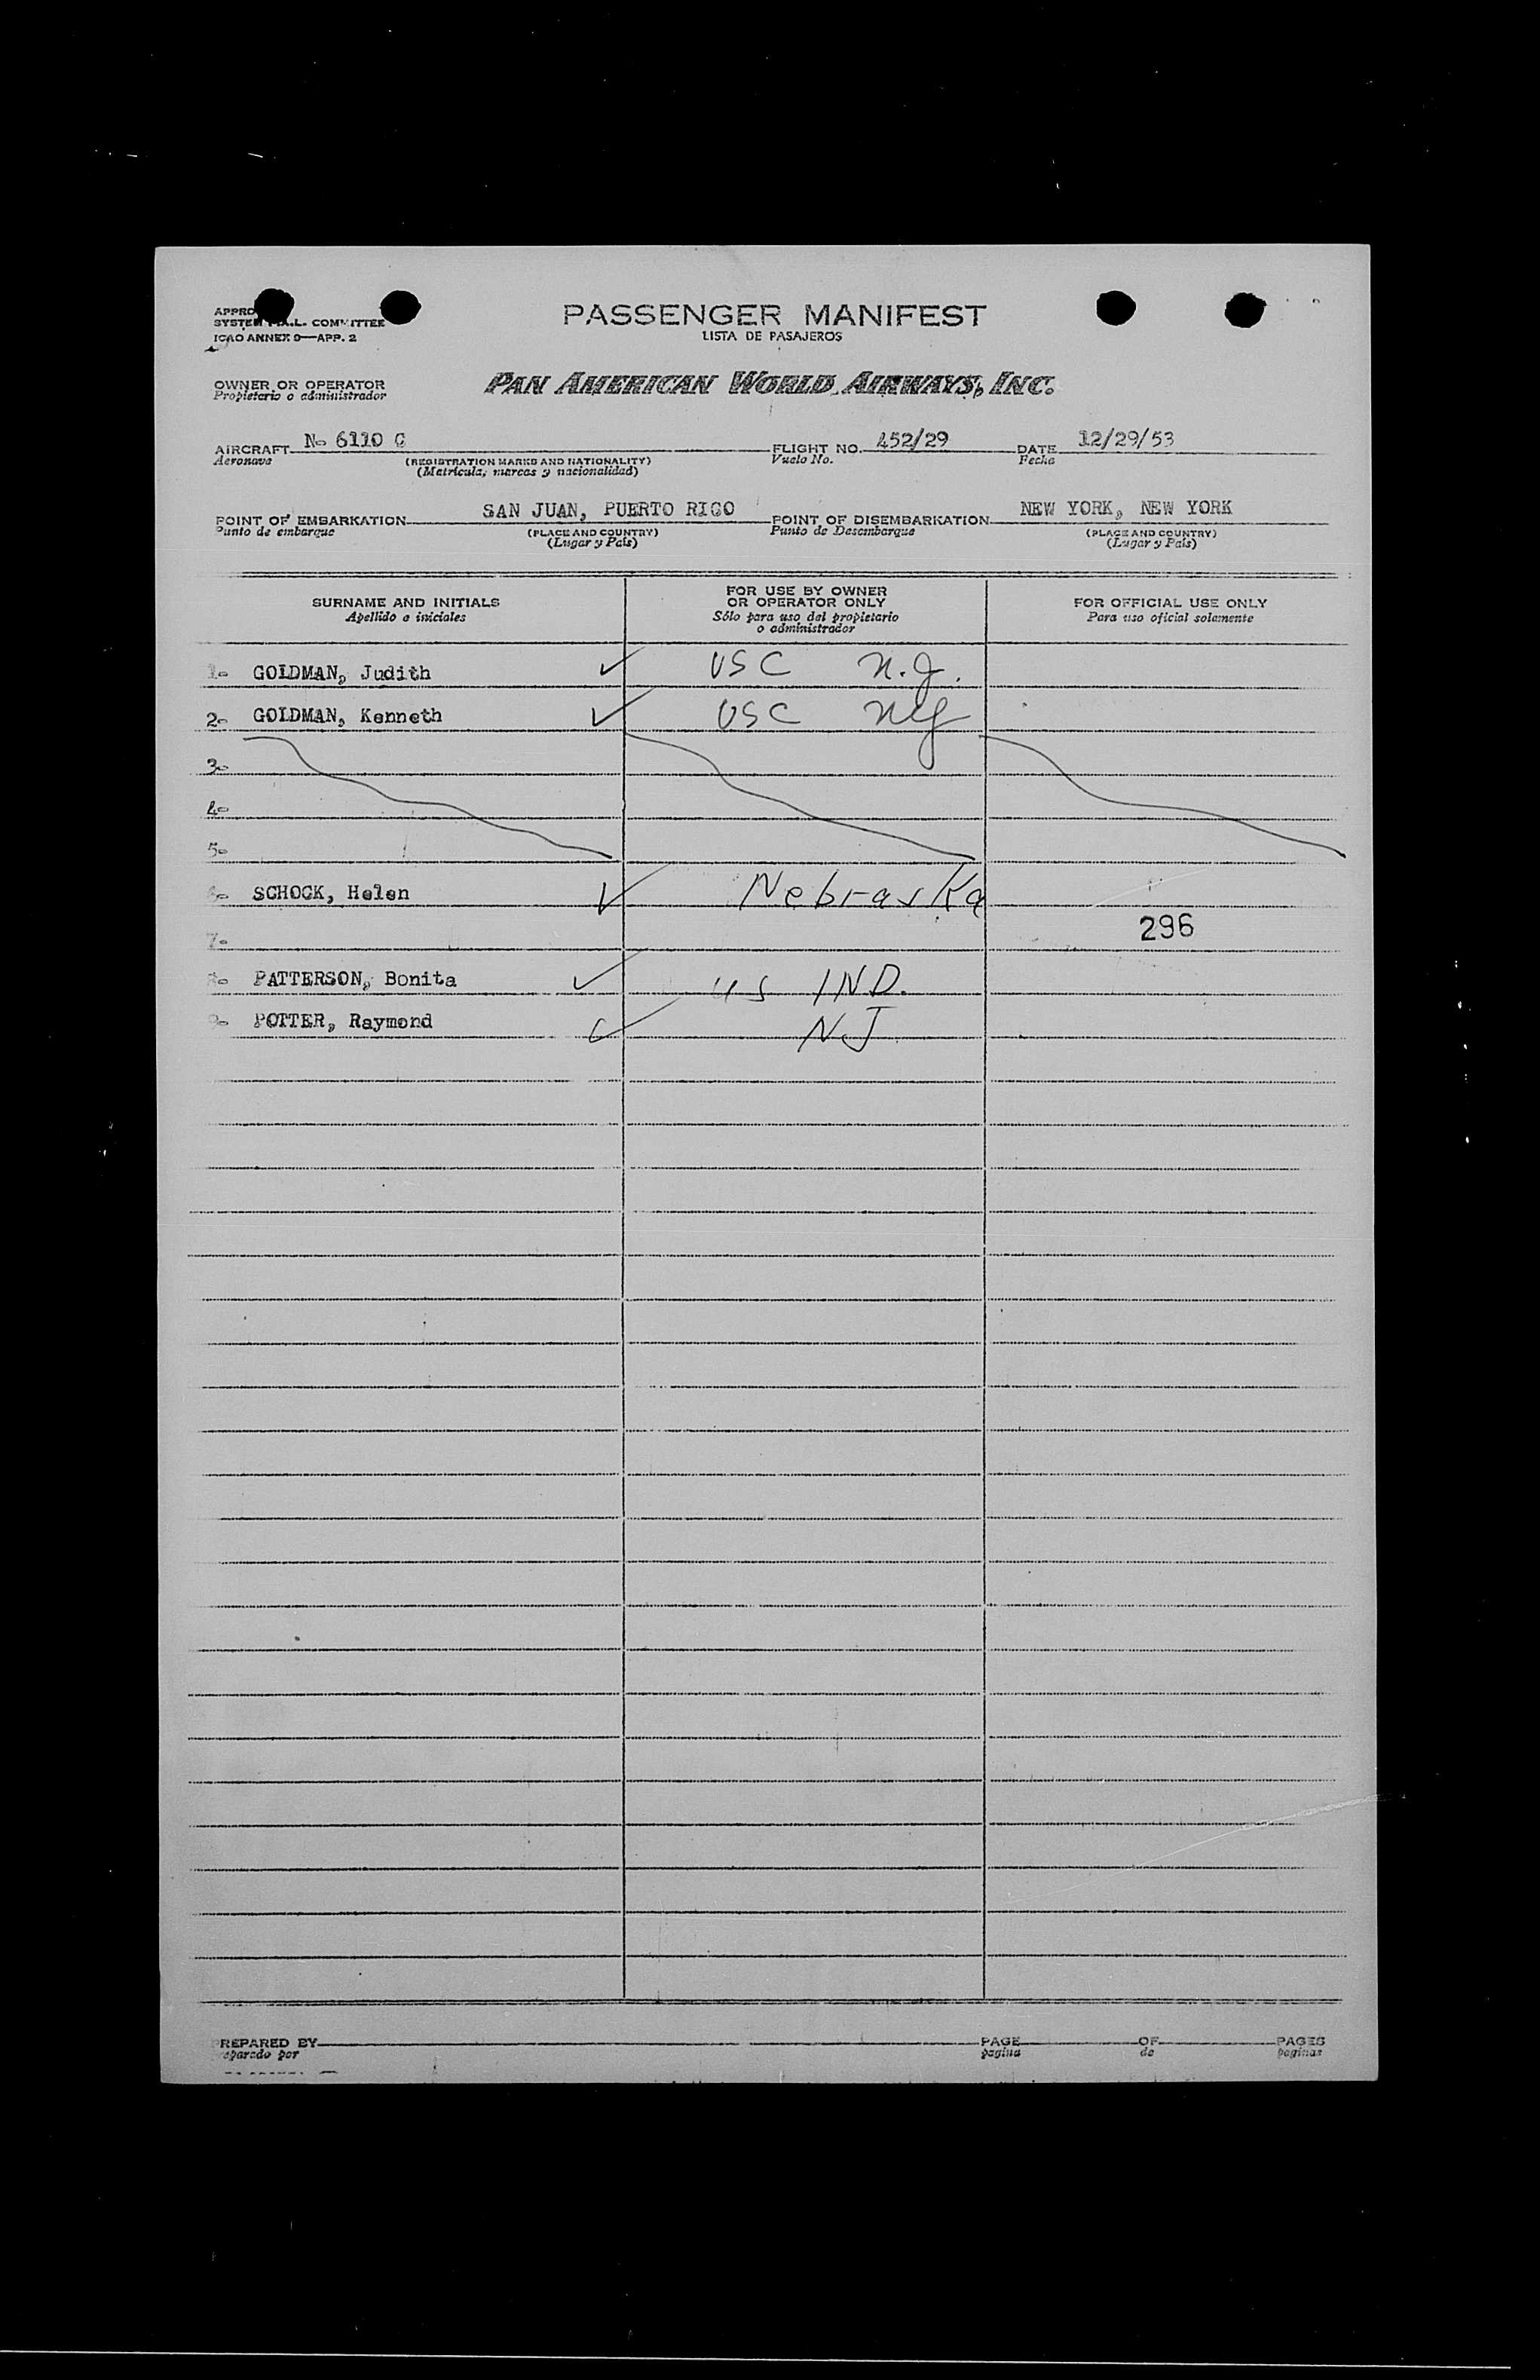 PASSENGER MANIFEST
LISTA DE PASAJEROS
SYSTEM F.A.L. COMMITTEE
ICAO ANNEX 9—APP. 2
OWNER OR OPERATOR
Propietario o administrador
PAN AMERICAN WORLD AIRWAYS, INC.
AIRCRAFT N- 6110 C FLIGHT NO. 452/29 DATE 12/29/53
Aeronave (REGISTRATION MARKS AND NATIONALITY) Vuelo No. Fecha
(Matrícula, marcas y nacionalidad)
POINT OF EMBARKATION SAN JUAN, PUERTO RICO POINT OF DISEMBARKATION NEW YORK, NEW YORK
Punto de embarque (PLACE AND COUNTRY) Punto de Desembarque (PLACE AND COUNTRY)
(Lugar y País) (Lugar y País)
SURNAME AND INITIALS FOR USE BY OWNER OR OPERATOR ONLY FOR OFFICIAL USE ONLY
Apellido e iniciales Sólo para uso del propietario o administrador Para uso oficial solamente
1- GOLDMAN, Judith ✓ USC N.J.
2- GOLDMAN, Kenneth ✓ USC NY
3-
4-
5-
6- SCHOCK, Helen ✓ Nebraska
7- 296
8- PATTERSON, Bonita ✓ US IND.
9- POTTER, Raymond ✓ NJ
PREPARED BY PAGE OF PAGES
eparado por pagina de paginas